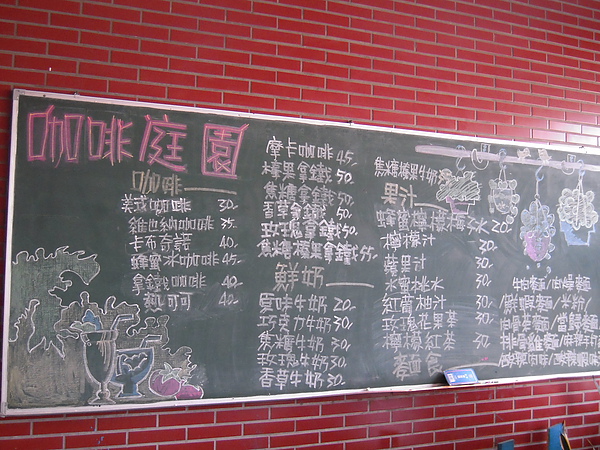 咖啡庭園
咖啡
美式咖啡 30.
維也納咖啡 35.
卡布奇諾 40.
蜂蜜冰咖啡 45.
拿鐵咖啡 40.
熱可可 40.
摩卡咖啡 45.
榛果拿鐵 50.
焦糖拿鐵 50.
香草拿鐵 50.
玫瑰拿鐵 50.
焦糖榛果拿鐵 55.
鮮奶
原味牛奶 20.
巧克力牛奶 30.
焦糖牛奶 30.
玫瑰牛奶 30.
香草牛奶 30.
焦糖榛果牛奶
果汁
蜂蜜檸檬冰 20.
檸檬汁 30.
蘋果汁 30.
水蜜桃水 50.
紅葡柚汁 30.
玫瑰花果茶 30.
檸檬紅茶 30.
麵食
牛肉麵/肉燥麵
/鮮蝦麵/米粉/
/肉骨茶麵/當歸麵
/排骨雞麵/麻辣牛肉